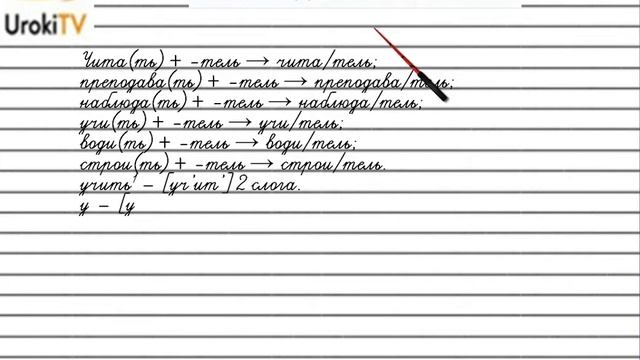 UrokiTV
Чита(ть) + -тель → чита/тель;
преподава(ть) + -тель → преподава/тель;
наблюда(ть) + -тель → наблюда/тель;
учи(ть) + -тель → учи/тель;
води(ть) + -тель → води/тель;
строи(ть) + -тель → строи/тель.
учить' – [уч'ит'] 2 слога.
у – [у